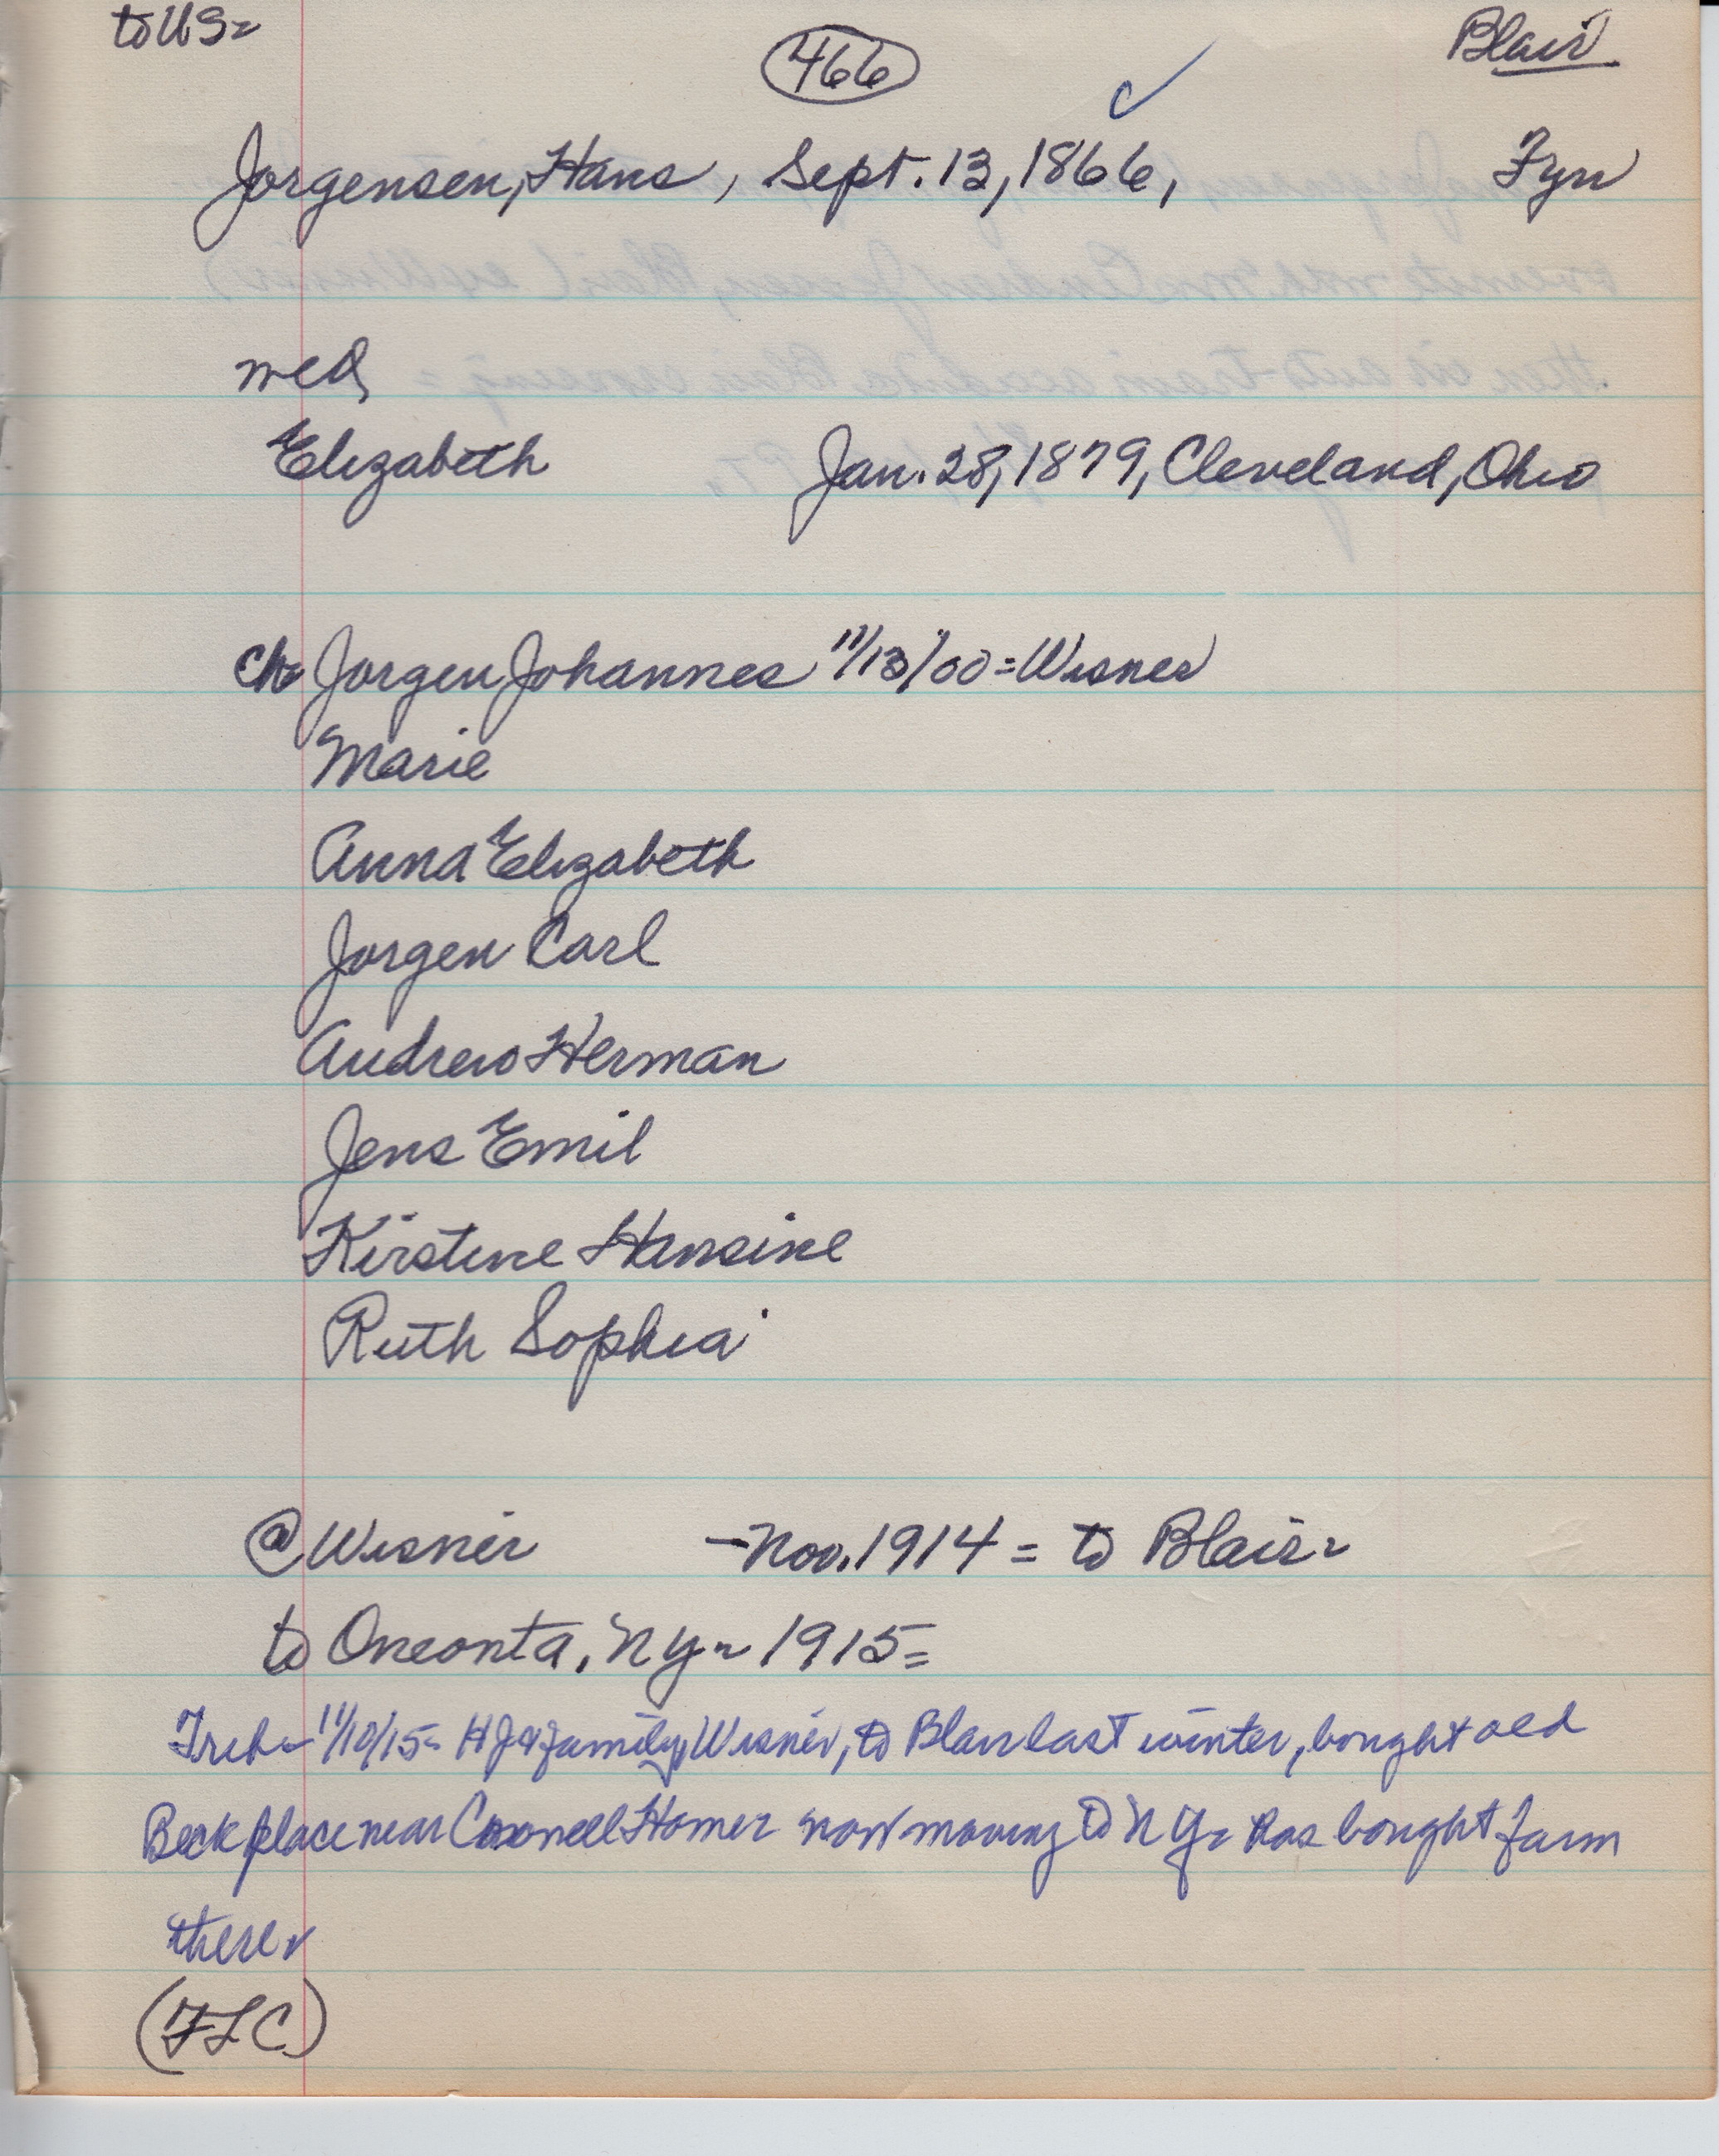 to US=
466
Blair
Jorgensen, Hans, Sept. 13, 1866, Fyn
med
Elizabeth Jan. 28, 1879, Cleveland, Ohio
ch= Jorgen Johannes 11/13/00 = Wisner
Marie
Anna Elizabeth
Jorgen Carl
Andrew Herman
Jens Emil
Kirstine Hansine
Ruth Sophia
@ Wisner - Nov. 1914 = to Blair=
to Oneonta, NY= 1915=
Trib= 11/10/15= HJ & family, Wisner, to Blair last winter, bought old
Beck place near Crowell Home= now moving to NY= has bought farm
there=
(FLC)